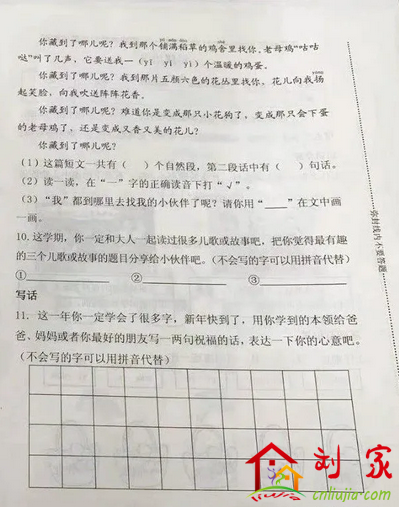 你藏到了哪儿呢？我到那个铺满稻草的鸡舍里找你。老母鸡“咕咕
哒”叫了几声，它要送我一（yí yì yī）个温暖的鸡蛋。
你藏到了哪儿呢？我到那片五颜六色的花丛里找你，花儿向我扬
起笑脸，向我吹送阵阵花香。
你藏到了哪儿呢？难道你是变成那只小花狗了，变成那只会下蛋
的老母鸡了，还是变成又香又美的花儿？
你藏到了哪儿呢？
（1）这篇短文一共有（ ）个自然段，第二段话中有（ ）句话。
（2）读一读，在“一”字的正确读音下打“√”。
（3）“我”都到哪里去找我的小伙伴了呢？请你用“____”在文中画
一画。
10. 这学期，你一定和大人一起读过很多儿歌或故事吧，把你觉得最有趣
的三个儿歌或故事的题目分享给小伙伴吧。（不会写的字可以用拼音代替）
①__________ ②__________ ③__________
写话
11. 这一年你一定学会了很多字，新年快到了，用你学到的本领给爸
爸、妈妈或者你最好的朋友写一两句祝福的话，表达一下你的心意吧。
（不会写的字可以用拼音代替）
弥封线内不要答题
刘家
cnliujia.com